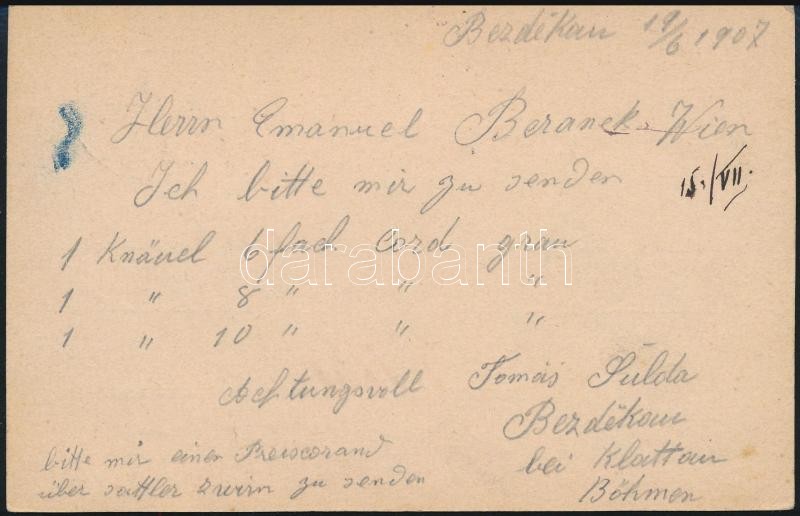 Bezděkau 19/6 1907
Herrn Emanuel Beranek Wien
15./VII.
Ich bitte mir zu senden
1 Knäuel 6 fach Cord grau
1 " 8 " " "
1 " 10 " " "
darabanth
Achtungsvoll Tomáš Šulda
Bezděkau
bei Klattau
Böhmen
bitte mir einen Preiscorand
über sattler zwirn zu senden